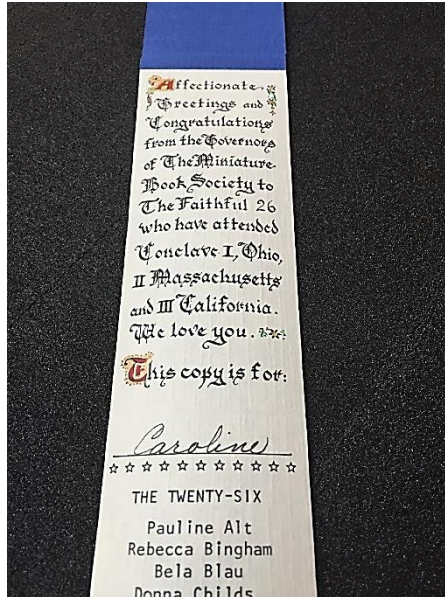 Affectionate
Greetings and
Congratulations
from the Governors
of The Miniature
Book Society to
The Faithful 26
who have attended
Conclave I, Ohio,
II Massachusetts
and III California.
We love you.
This copy is for:
Caroline
THE TWENTY-SIX
Pauline Alt
Rebecca Bingham
Bela Blau
Donna Childs